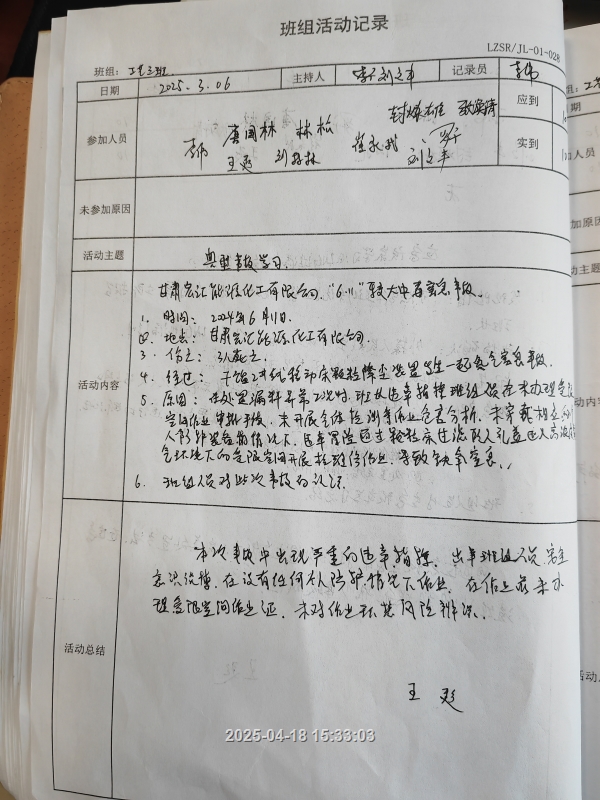 班组活动记录
LZSR/JL-01-028
班组: 工艺三班
日期 2025.3.06 主持人 记录员 应到
参加人员 唐国林 林松
王延 刘立丰 实到
未参加原因
活动主题 典型事故学习
甘肃宏汇能源化工有限公司"6·11"较大中毒窒息事故
1. 时间: 2024年6月11日.
2. 地点: 甘肃宏汇能源化工有限公司.
3. 伤亡: 3人死亡
4. 经过: 干馏2#线移动床颗粒除尘装置发生一起氮气窒息事故.
活动内容 5. 原因: 在处置漏料异常工况时, 班长违章指挥班组人员在未办理受限
空间作业审批手续, 未开展气体检测等作业危害分析, 未穿戴相应的
人防护装备的情况下, 违章冒险通过颗粒床过滤器人孔盖进入高浓氮
气环境下的受限空间开展检维修作业, 导致缺氧窒息.
6. 班组人员对此次事故的认识.
本次事故中出现严重的违章指挥, 当班班组人员安全
意识淡薄, 在没有任何个人防护情况下作业, 在作业前未办
理受限空间作业证, 未对作业环境风险辨识.
活动总结
王延
2025-04-18 15:33:03